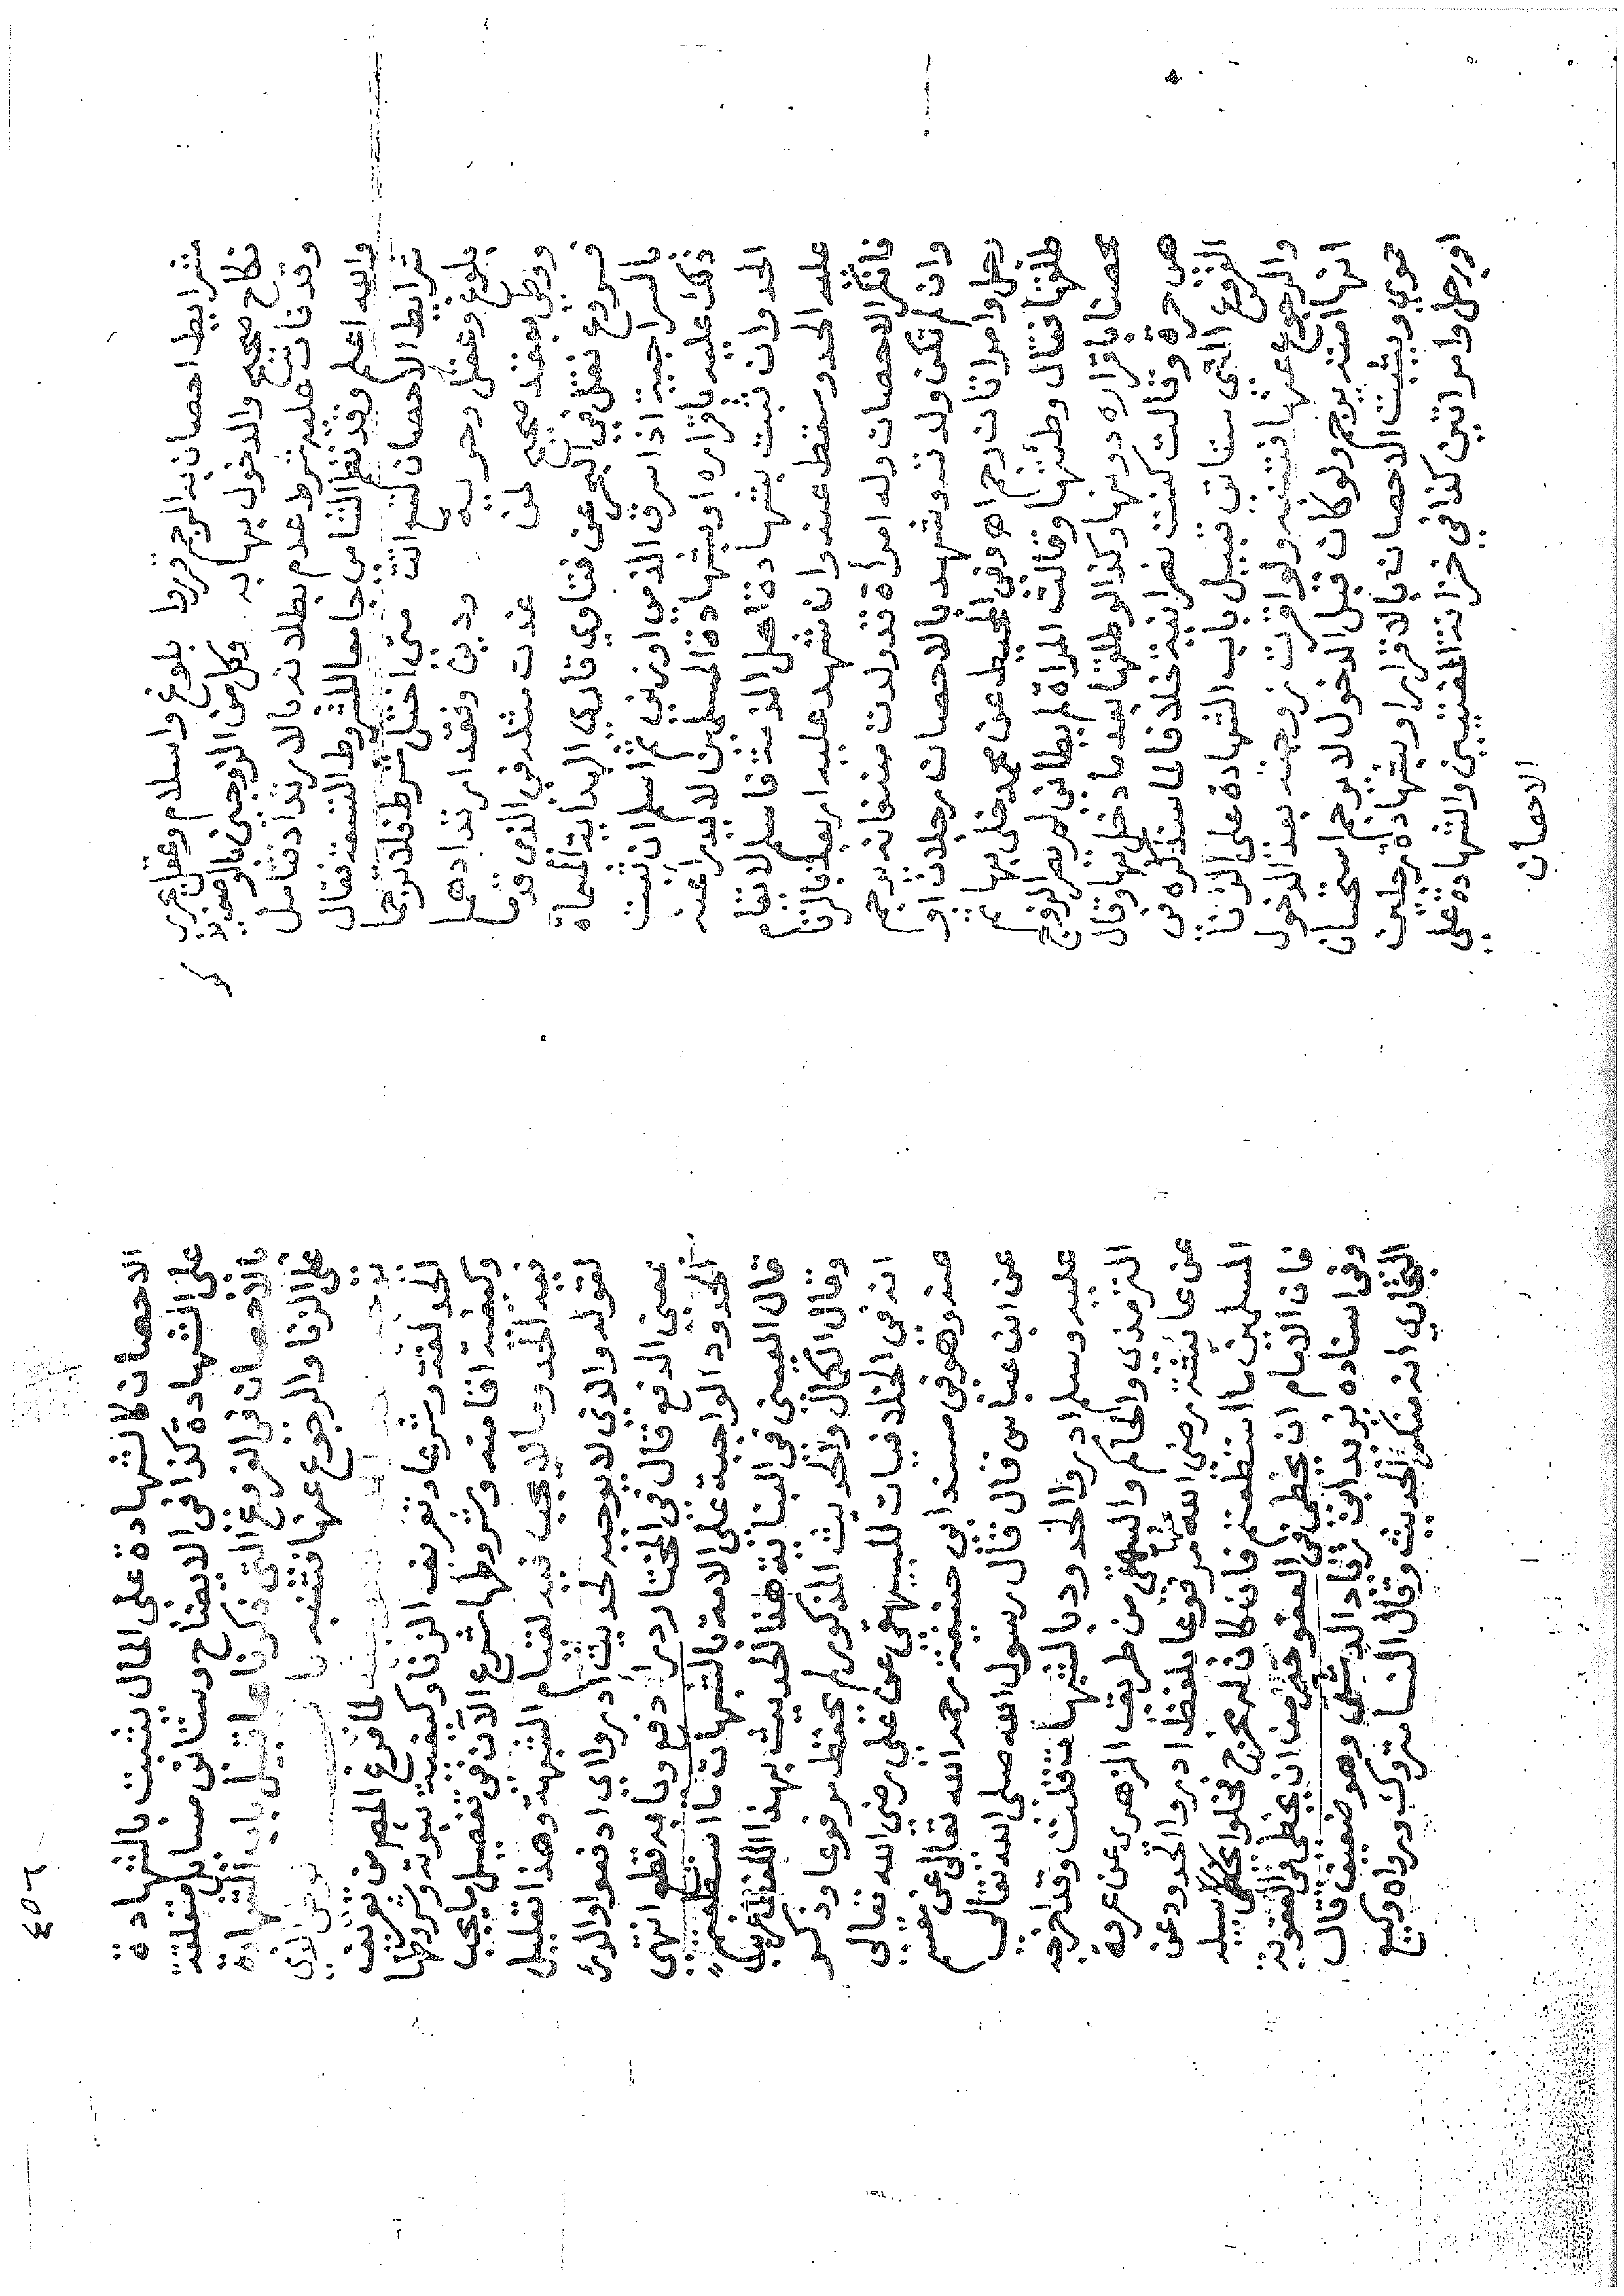 شرايط احصان به الرجم قرروا بلوغ واسلام وعقل يحرر
نكاح صحيح والدخول بها به وكل من الزوجين بالوصف يذ
وقد نازع عليه شرط عدم بطلانه بالارتداد فتامل
والله اعلم وقد نظم الشامي جامعا للشروط التسعة فقال
شرايط الاحصان تسع اتت متى اختل شرط فلا ترجما
بلوغ وعقل وحريه ودين وفقد ارتدادهما
ووطئ بعقد صحيح لمن غدت مثله في الذي قدما
فروع نقل في البحر عن فتاوي قاري الهداية المسماة
بالسراجية اذا سرق الذمي او زنى ثم اسلم ان ثبت
ذلك عليه باقراره او بشهادة المسلمين لا يدرأ عنه
الحد وان ثبت بشهادة اهل الذمة فاسلم لا يقام
عليه الحد وسقط عنه وان شهد عليه اربعة بالزنا
فانكر الاحصان وله امرأة قد ولدت منه فانه يرجم
وان لم تكن ولدت وشهد بالاحصان رجلان او
رجل وامراتان رجم اه وفي المحيط عن محمد خلى بها ثم
طلقها فقال وطئتها وقالت المراة لم يطاني يصير الزوج
محصنا باقراره دونها وكذا لو طلقها بعد ما دخل بها وقال
هي حرة وقالت كنت نصرانية خلافا لما سنذكره في
الفروع التى ستاتى قبيل باب الشهادة على الزنا
والرجوع عنها انتبه ولو اقرت زوجته بعد الدخول
انها امته يرجم ولو كان قبل الدخول لا يرجم استحسان
نموي ويثبت الاحصان بالاقرار او بشهادة رجلين
او رجل وامراتين كذا في خزانة المفتين والشهادة على
الاحصان
٤٥٦
الاحصان كالشهادة على المال تثبت بالشهادة
على الشهادة كذا في الايضاح وستاتى مسايل متعلقة
بالاحصان في الفروع التى ذكرناها قبيل باب الشهادة
على الزنا والرجوع عنها انتبه
لما فرغ المص من تعريف
الحد لغة وشرعا وتعريف الزنا وكيفية ثبوته وشروطها
وكيفية اقامته وشروطها شرع الآن في تفصيل ما يجب
فيه الحد وما لا يجب فيه لقيام الشبهة وهذا تعليل
لقوله والذي لا يوجبه لحديث ادرؤا اي ادفعوا والدرئ
معنى الدفع قال في المختار درأ دفع وبابه قطع انتهى
الحدود الواجبة على الامة بالشبهات ما استطعتم
قال العينى في البناية هذا الحديث بهذا اللفظ غريب
وقال الكمال والحديث المذكور لم يحفظ مرفوعا وذكر
انه في الخلافيات للبيهقى عن على رضى الله تعالى
عنه وهو في مسند ابى حنيفة رحمه الله تعالى عن مقسم
عن ابن عباس قال قال رسول الله صلى الله تعالى
عليه وسلم ادروا الحدود بالشبهات قلت وقد اخرجه
الترمذى والحاكم والبيهقى من طريق الزهرى عن عروة
عن عايشة رضى الله عنها مرفوعا بلفظ ادروا الحدود عن
المسلمين ما استطعتم فان كان له مخرج فخلوا سبيله
فان الامام ان يخطئ في العفو خير من ان يخطئ في العقوبة
وفى اسناده يزيد ابن زياد الدمشقى وهو ضعيف قال
البخارى انه منكر الحديث وقال النسا متروك ورواه وكيع